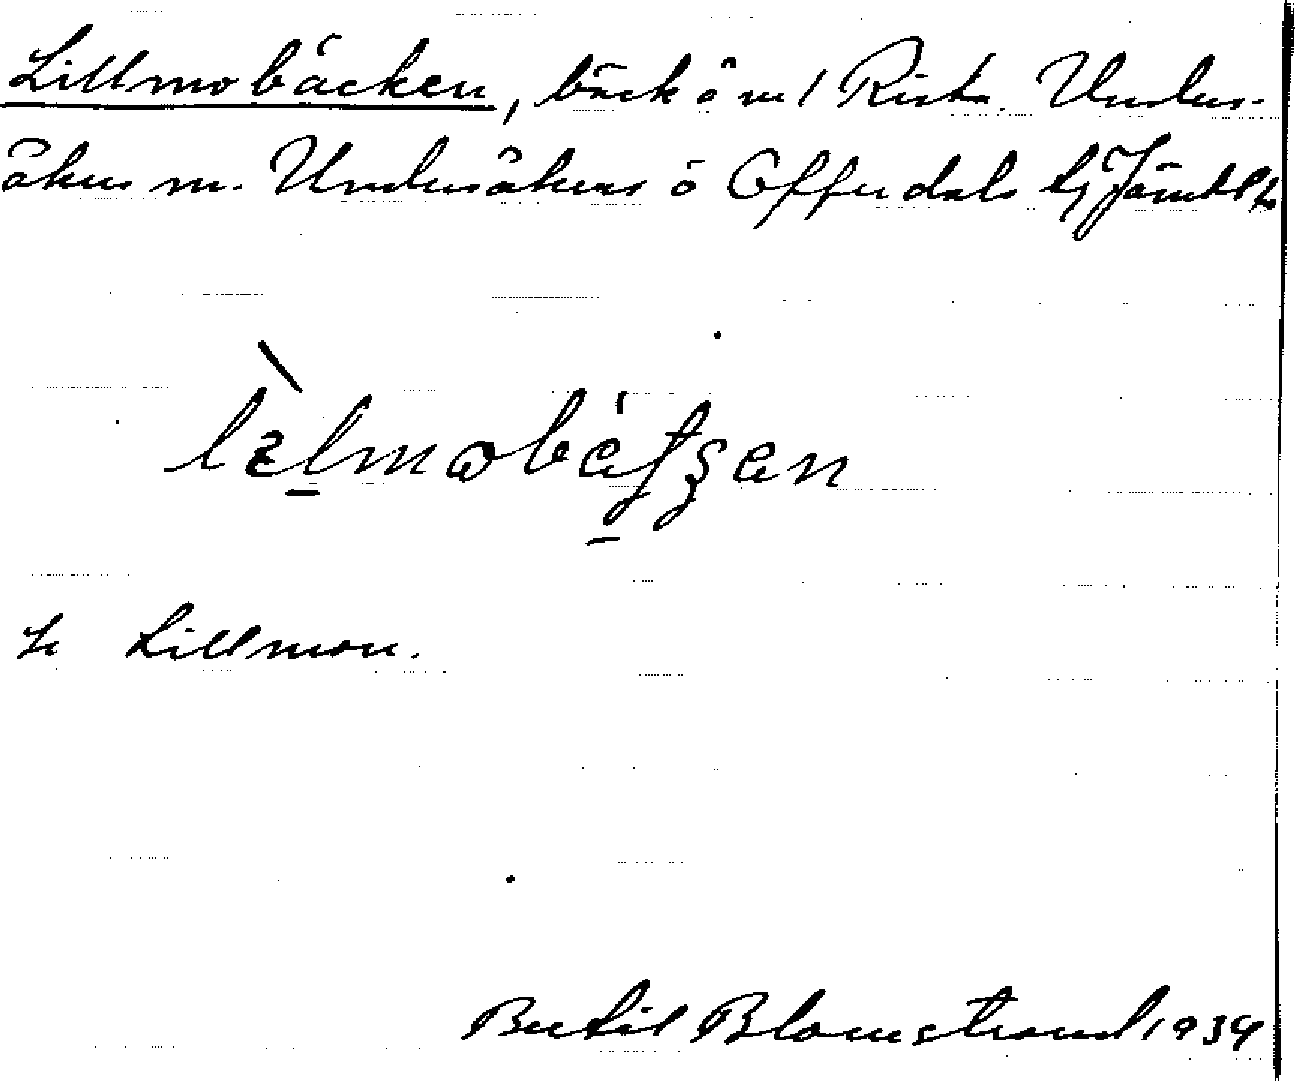 Lillmobäcken, bäck ö om Rista. Unders-
åkers sn. Undersåkers o Offerdals tg Jämtl l.
Lillmon.
Bertil Blomstrand 1939